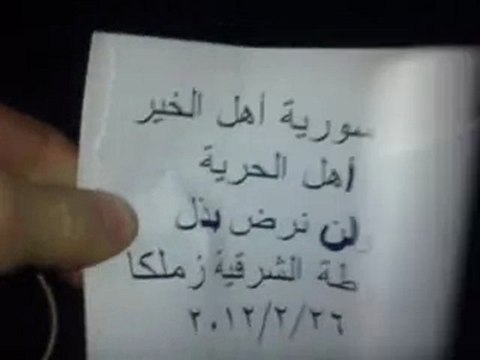 سورية أهل الخير
أهل الحرية
لن نرض بذل
طة الشرقية زملكا
٢٠١٢/٢/٢٦